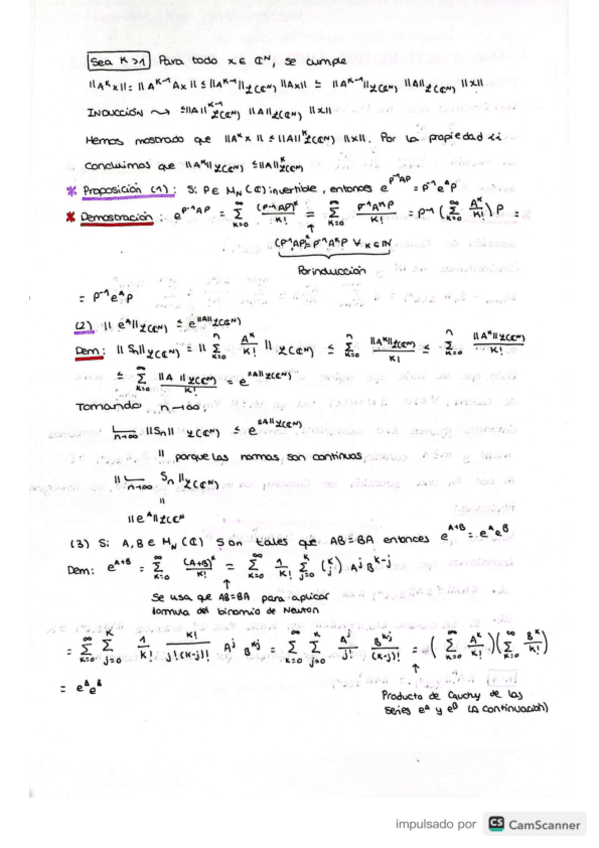 Sea K>1 Para todo x ∈ ℂᴺ, se cumple
||Aᴷx|| = ||Aᴷ⁻¹Ax|| ≤ ||Aᴷ⁻¹||_𝓛(ℂᴺ) ||Ax|| ≤ ||Aᴷ⁻¹||_𝓛(ℂᴺ) ||A||_𝓛(ℂᴺ) ||x||
INDUCCIÓN ⤳ ≤ ||A||ᴷ⁻¹_𝓛(ℂᴺ) ||A||_𝓛(ℂᴺ) ||x||
Hemos mostrado que ||Aᴷx|| ≤ ||A||ᴷ_𝓛(ℂᴺ) ||x||. Por la propiedad
concluimos que ||Aᴷ||_𝓛(ℂᴺ) ≤ ||A||ᴷ_𝓛(ℂᴺ)
* Proposición (1): Si P ∈ M_N(ℂ) invertible, entonces e^(P⁻¹AP) = P⁻¹e^A P
* Demostración: e^(P⁻¹AP) = ∑_{K=0}^∞ (P⁻¹AP)ᴷ/K! = ∑_{K=0}^∞ P⁻¹AᴷP/K! = P⁻¹(∑_{K=0}^∞ Aᴷ/K!)P =
↑
(P⁻¹AP)ᴷ = P⁻¹AᴷP ∀ K ∈ ℕ
Por inducción
= P⁻¹e^A P
(2) ||e^A||_𝓛(ℂᴺ) ≤ e^(||A||_𝓛(ℂᴺ))
Dem: ||Sn||_𝓛(ℂᴺ) = ||∑_{K=0}^n Aᴷ/K! ||_𝓛(ℂᴺ) ≤ ∑_{K=0}^n ||Aᴷ||_𝓛(ℂᴺ)/K! ≤ ∑_{K=0}^n ||A||ᴷ_𝓛(ℂᴺ)/K!
≤ ∑_{K=0}^∞ ||A||_𝓛(ℂᴺ)/K! = e^(||A||_𝓛(ℂᴺ))
Tomando n→∞:
lim_{n→∞} ||Sn||_𝓛(ℂᴺ) ≤ e^(||A||_𝓛(ℂᴺ))
|| porque las normas son continuas
|| lim_{n→∞} Sn ||_𝓛(ℂᴺ)
||
||e^A||_𝓛(ℂᴺ
(3) Si A, B ∈ M_N(ℂ) son tales que AB=BA entonces e^(A+B) = e^A e^B
Dem: e^(A+B) = ∑_{K=0}^∞ (A+B)ᴷ/K! = ∑_{K=0}^∞ 1/K! ∑_{j=0}^K (K j) Aʲ Bᴷ⁻ʲ
↑
Se usa que AB=BA para aplicar
fórmula del binomio de Newton
= ∑_{K=0}^∞ ∑_{j=0}^K 1/K! K!/(j!(K-j)!) Aʲ Bᴷ⁻ʲ = ∑_{K=0}^∞ ∑_{j=0}^K Aʲ/j! Bᴷ⁻ʲ/(K-j)! = (∑_{K=0}^∞ Aᴷ/K!)(∑_{K=0}^∞ Bᴷ/K!)
= e^A e^B
↑
Producto de Cauchy de las
series e^A y e^B (A continuación)
impulsado por CS CamScanner